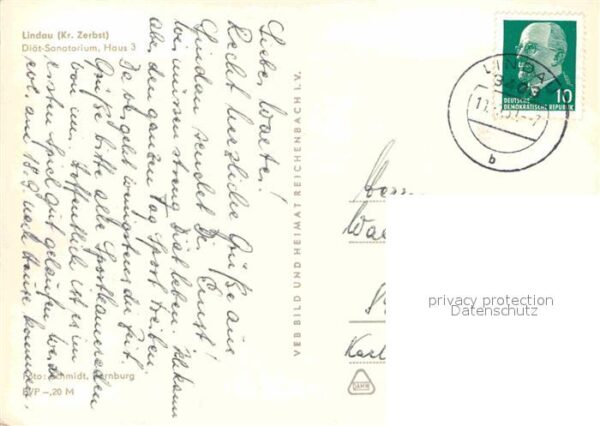 Lindau (Kr. Zerbst)
Diät-Sanatorium, Haus 3
Lieber Walter!
Recht herzliche Grüße aus
Lindau sendet Dir Ernst!
Wir müssen streng Diät leben. Ich kann
aber den ganzen Tag Sport treiben
Da vergeht wenigstens die Zeit.
Grüße bitte alle Sportkameraden
von mir. Hoffentlich ist es im
ersten Spiel gut gelaufen. Werde
am 18.9. nach Hause kommen.
Foto: Schmidt, Bernburg
EVP -,20 M
VEB BILD UND HEIMAT REICHENBACH I. V.
DEUTSCHE
DEMOKRATISCHE REPUBLIK
10
LINDAU
b
Karl
privacy protection
Datenschutz